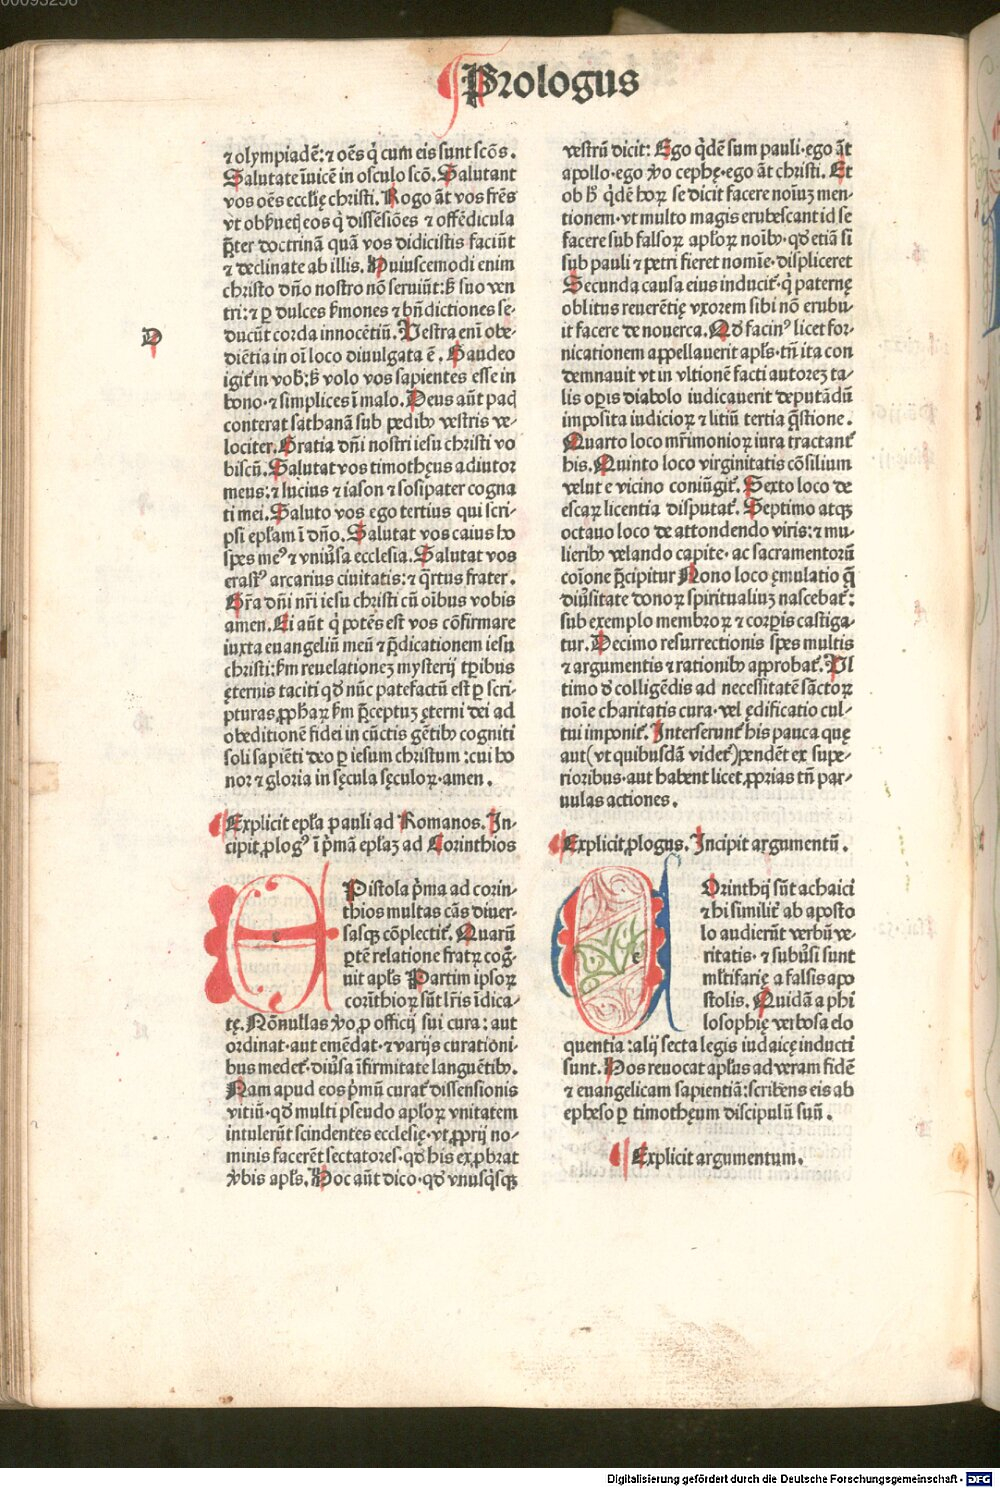 Prologus
⁊ olympiadē: ⁊ oēs q̇ cum eis sunt scōs.
Salutate īuicē in osculo scō. Salutant
vos oēs ecclīę christi. Rogo āt vos frēs
vt obẜuetꝭ eos q̇ dissēsiōes ⁊ offēdicula
p̄ter doctrinā quā vos didicistis faciūt
⁊ declinate ab illis. Huiuscemodi enim
christo dn̄o nostro nō seruiūt: ẜꝫ suo ven
tri: ⁊ ꝑ dulces ẜmones ⁊ bn̄dictiones se-
ducūt corda innocētiū. Vestra enī obe-
D
diētia in oī loco diuulgata ē. Gaudeo
igit̄ in vob̄: ẜꝫ volo vos sapientes esse in
bono ⁊ simplices ī malo. Deus aūt pacꝭ
conterat sathanā sub pedibꝫ vestris ve-
lociter. Gratia dn̄i nostri iesu christi vo
biscū. Salutat vos timothęus adiutor
meus: ⁊ lucius ⁊ iason ⁊ sosipater cogna
ti mei. Saluto vos ego tertius qui scri-
psi epl̄am ī dn̄o. Salutat vos caius ho
spes meꝰ ⁊ vniūsa ecclesia. Salutat vos
erastꝰ arcarius ciuitatis: ⁊ q̄rtus frater.
Gr̄a dn̄i nr̄i iesu christi cū oībus vobis
amen. Ei aūt q̇ potēs est vos cōfirmare
iuxta euangeliū meū ⁊ p̄dicationem iesu
christi: ẜm reuelationeꝫ mysterij tꝑibus
ęternis taciti qđ nūc patefactū est ꝑ scri-
pturas ꝓphaꝝ ẜm p̄ceptuꝫ ęterni dei ad
obeditionē fidei in cūctis gētibꝫ cogniti
soli sapiēti deo ꝑ iesum christum: cui ho
nor ⁊ gloria in sęcula sęculoꝝ. amen.
Explicit epl̄a pauli ad Romanos. In-
cipit ꝓlogꝰ ī p̄mā epl̄aꝫ ad Corinthios
EPistola p̄ma ad corin-
thios multas cās diuer-
sasqꝫ cōplectit̄. Quarū
ꝑtē relatione fratꝝ coḡ
uit apl̄s Partim ipsoꝝ
corīthioꝝ sūt lr̄is īdica-
tę. Nōnullas ꝟo ꝓ officij sui cura: aut
ordinat. aut emēdat. ⁊ varijs curationi-
bus medet̄. diūsa īfirmitate languētibꝫ.
Nam apud eos p̄mū curat̄ dissensionis
vitiū. qđ multi pseudo apl̄oꝝ vnitatem
intulerūt scindentes ecclesię. vt ꝓprij no-
minis facerēt sectatores. qđ his exꝓbrat
ꝟbis apl̄s. Hoc aūt dico. qđ vnusq̇sqꝫ
vestrū dicit: Ego q̇dē sum pauli. ego āt
apollo. ego ꝟo cephę. ego āt christi. Et
ob h̄ q̇dē hoꝝ se dicit facere noīuꝫ men-
tionem. vt multo magis erubescant id se
facere sub falsoꝝ apl̄oꝝ noībꝫ. qđ etiā si
sub pauli ⁊ petri fieret nomīe. displiceret
Secunda causa eius inducit̄. q̇ paternę
oblitus reuerētię vxorem sibi nō erubu-
it facere de nouerca. Ad facinꝰ licet for-
nicationem appellauerit apl̄s. tn̄ ita con
demnauit vt in vltionē facti autoreꝫ ta-
lis oꝑis diabolo iudicauerit deputādū
imposita iudicioꝝ ⁊ litiū tertia q̄stione.
Quarto loco mr̄imonioꝝ iura tractant̄
his. Quinto loco virginitatis cōsilium
velut e vicino coniūgit̄. Sexto loco de
escaꝝ licentia disputat̄. Septimo atqꝫ
octauo loco de attondendo viris: ⁊ mu-
lieribꝫ velando capite. ac sacramentorū
coīone p̄cipitur Nono loco ęmulatio q̄
diūsitate donoꝝ spiritualiuꝫ nascebat̄:
sub exemplo membroꝝ ⁊ corꝑis castiga-
tur. Decimo resurrectionis spes multis
⁊ argumentis ⁊ rationibꝫ approbat̄. Vl
timo đ colligēdis ad necessitatē sāctoꝝ
noīe charitatis cura. vel ędificatio cul-
tui imponit̄. Interserunt̄ his pauca quę
aut (vt quibusdā videt̄) pendēt ex supe-
rioribus. aut habent licet ꝓprias tn̄ par-
uulas actiones.
Explicit ꝓlogus. Incipit argumentū.
COrinthij sūt achaici
⁊ hi similit̄ ab aposto
lo audierūt verbū ve-
ritatis. ⁊ subūsi sunt
ml̄tifarię a falsis apo
stolis. Quidā a phi
losophię verbosa elo
quentia: alij secta legis iudaicę inducti
sunt. Hos reuocat apl̄us ad veram fidē
⁊ euangelicam sapientiā: scribens eis ab
epheso ꝑ timothęum discipulū suū.
Explicit argumentum.
Digitalisierung gefördert durch die Deutsche Forschungsgemeinschaft - DFG